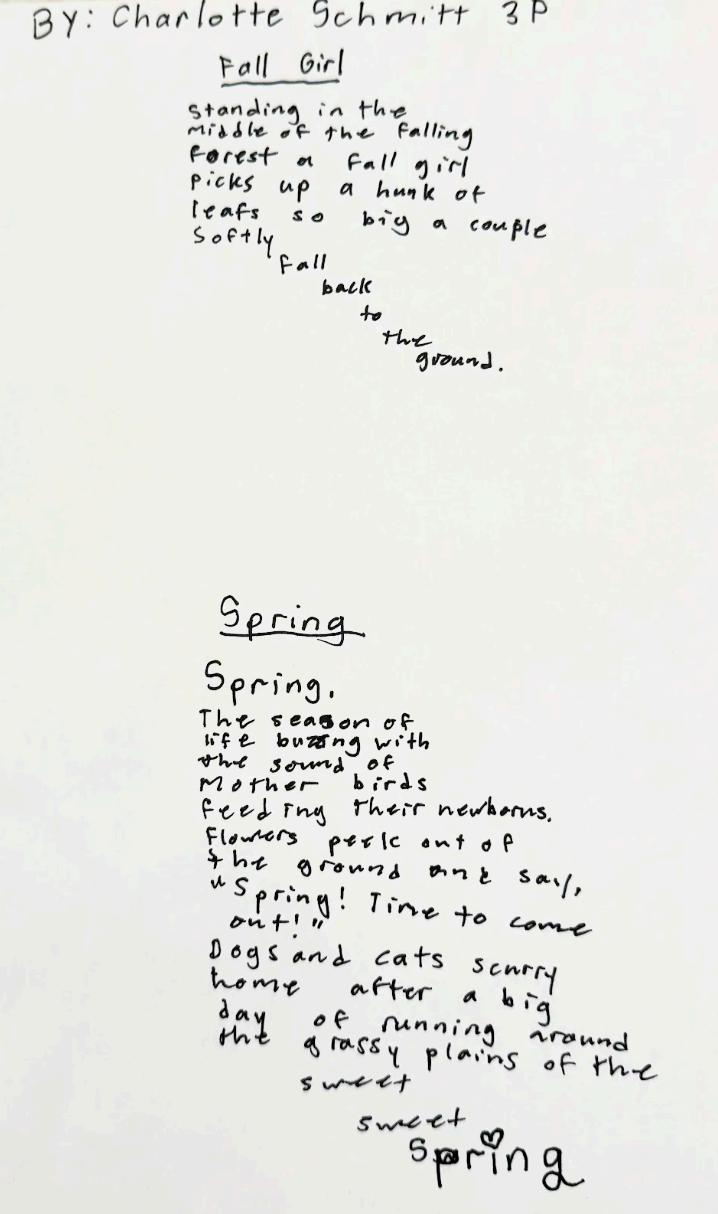 BY: Charlotte Schmitt 3P
Fall Girl
Standing in the
middle of the falling
forest a fall girl
picks up a hunk of
leafs so big a couple
softly
fall
back
to
the
ground.
Spring
Spring.
The season of
life buzzing with
the sound of
Mother birds
feeding their newborns.
Flowers peek out of
the ground and say,
"Spring! Time to come
out!"
Dogs and cats scurry
home after a big
day of running around
the grassy plains of the
sweet
sweet
Spring